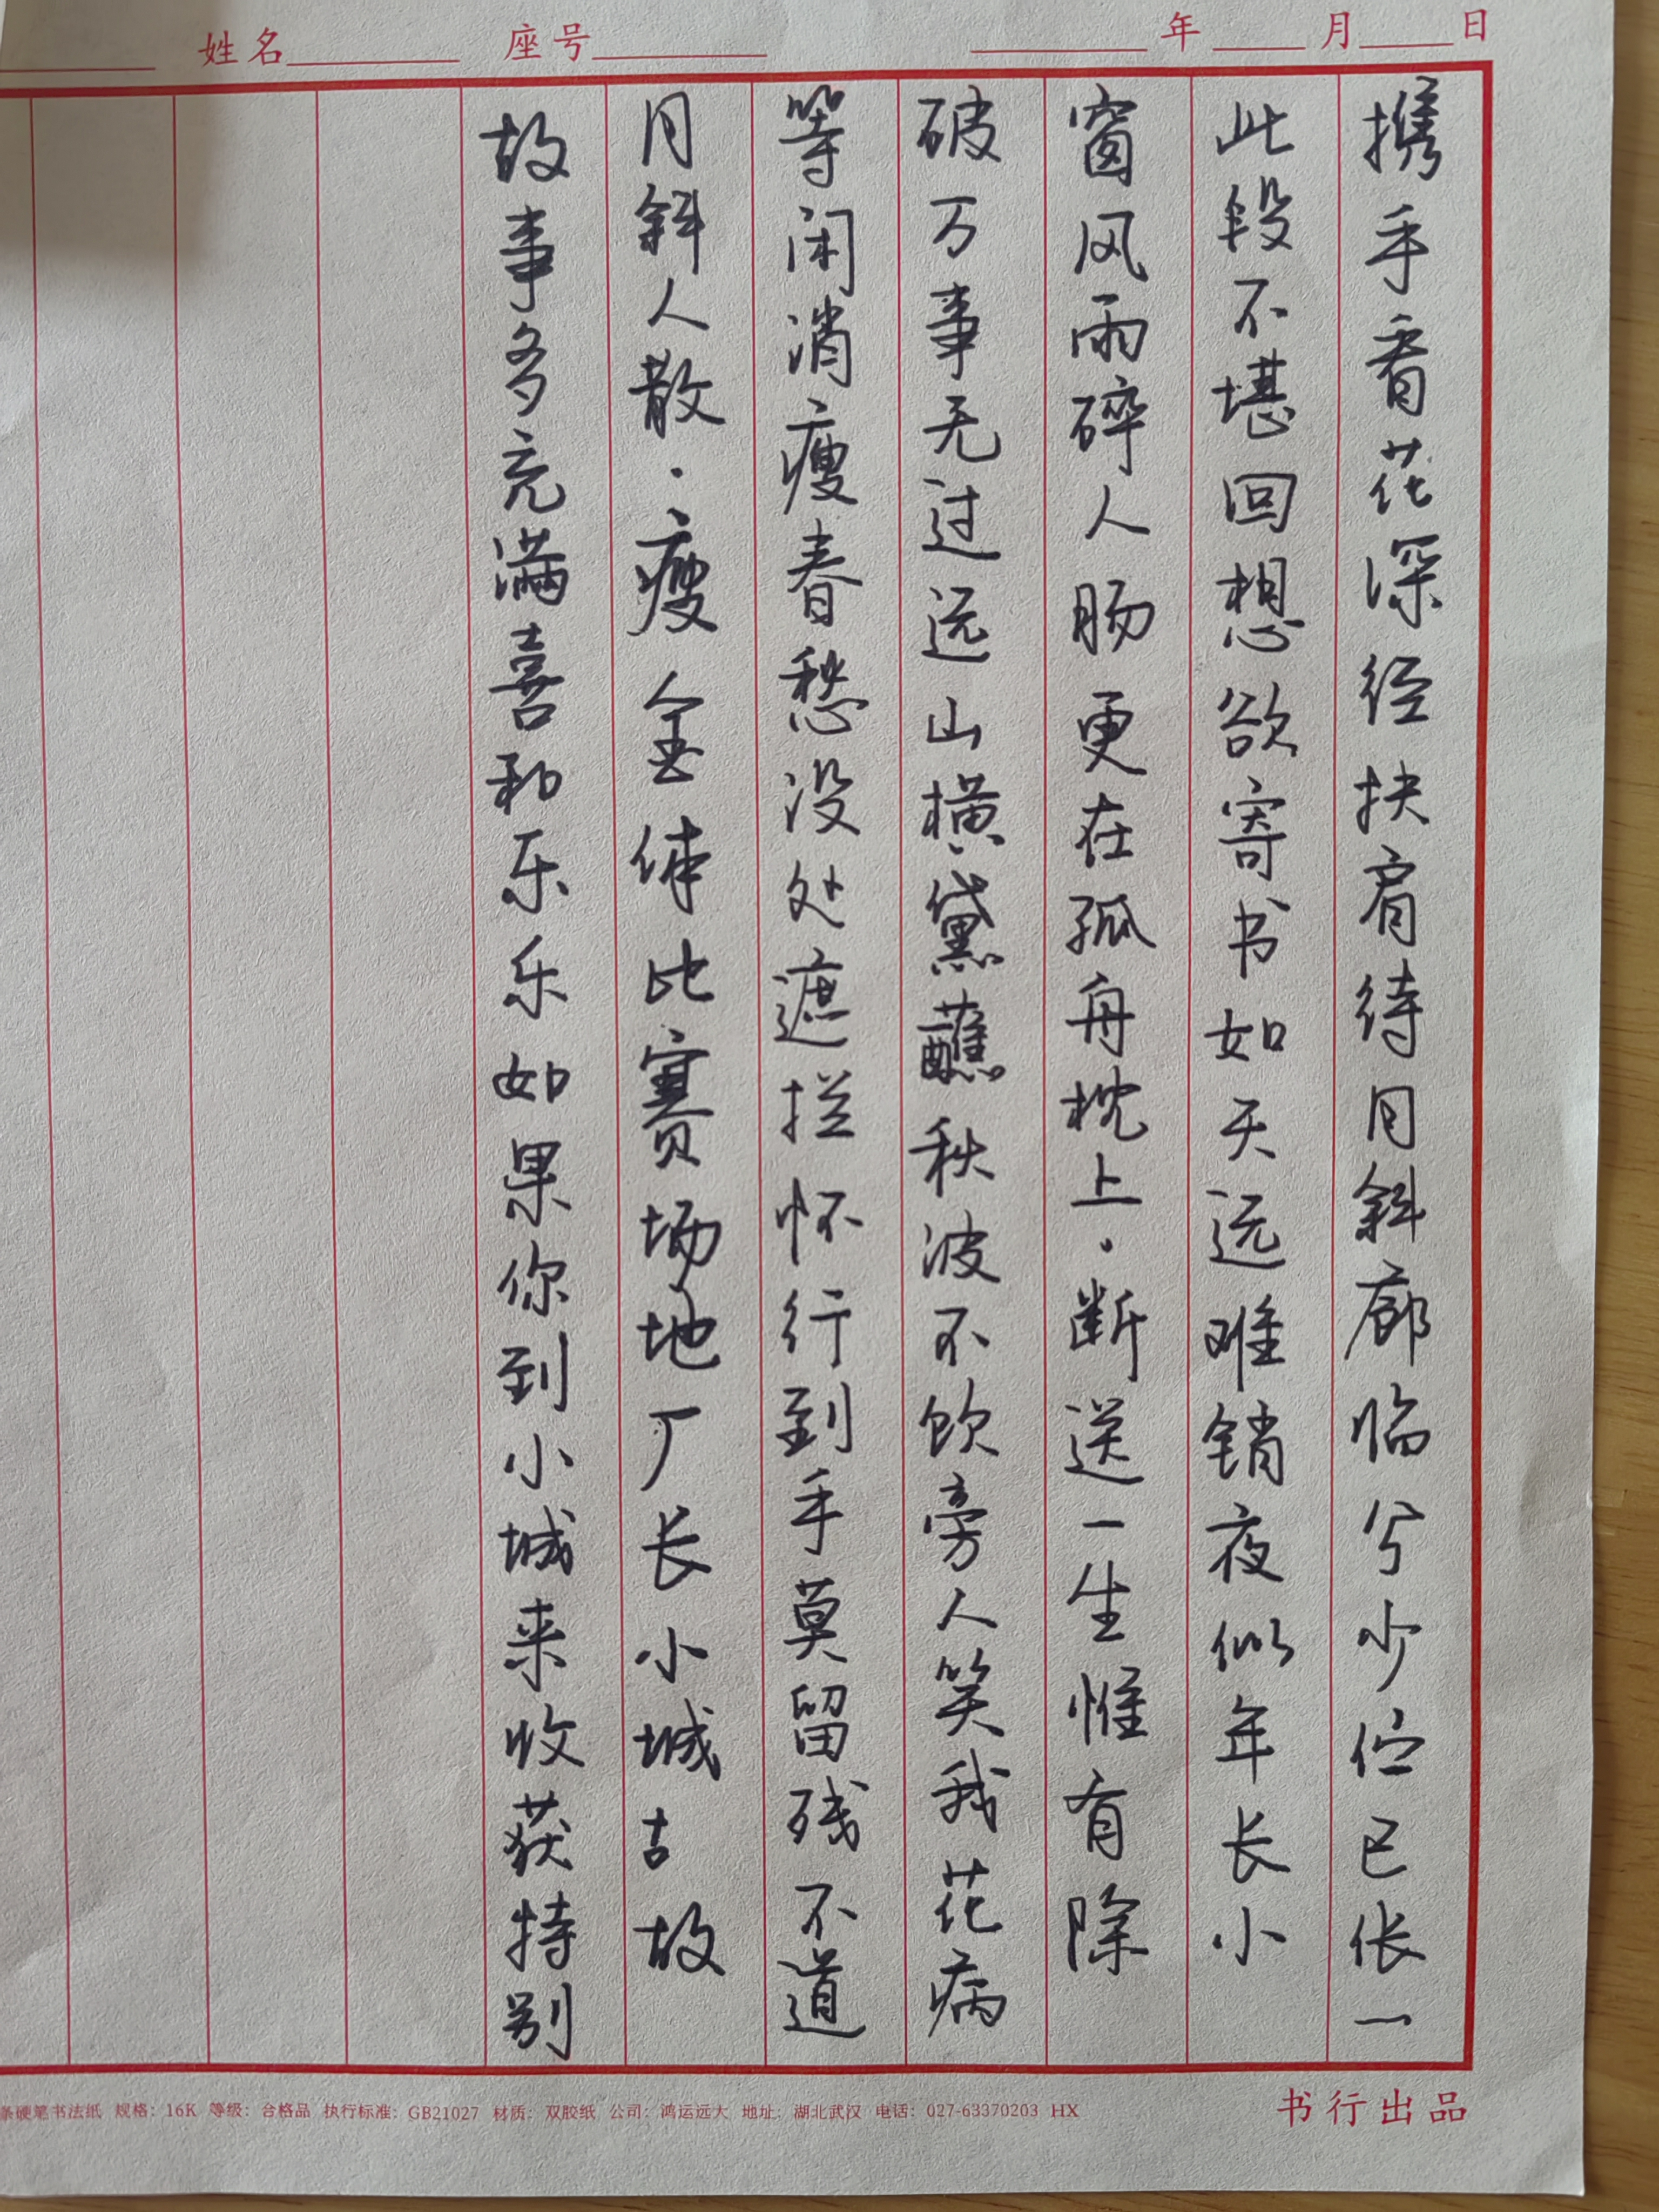 姓名 座号 年 月 日
携手看花深径扶肩待月斜廊临兮少伫已伥一
此段不堪回想欲寄书如天远难销夜似年长小
窗风雨碎人肠更在孤舟枕上·断送一生惟有除
破万事无过远山横黛蘸秋波不饮旁人笑我花病
等闲消瘦春愁没处遮拦怀行到手莫留残不道
月斜人散·瘦金体比赛场地厂长小城古故
故事多充满喜和乐乐如果你到小城来收获特别
条硬笔书法纸 规格：16K 等级：合格品 执行标准：GB21027 材质：双胶纸 公司：鸿运远大 地址：湖北武汉 电话：027-63370203 HX
书行出品